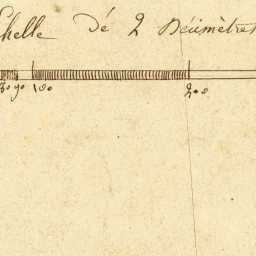 chelle dé 2 Décimètres
80 90 100 200